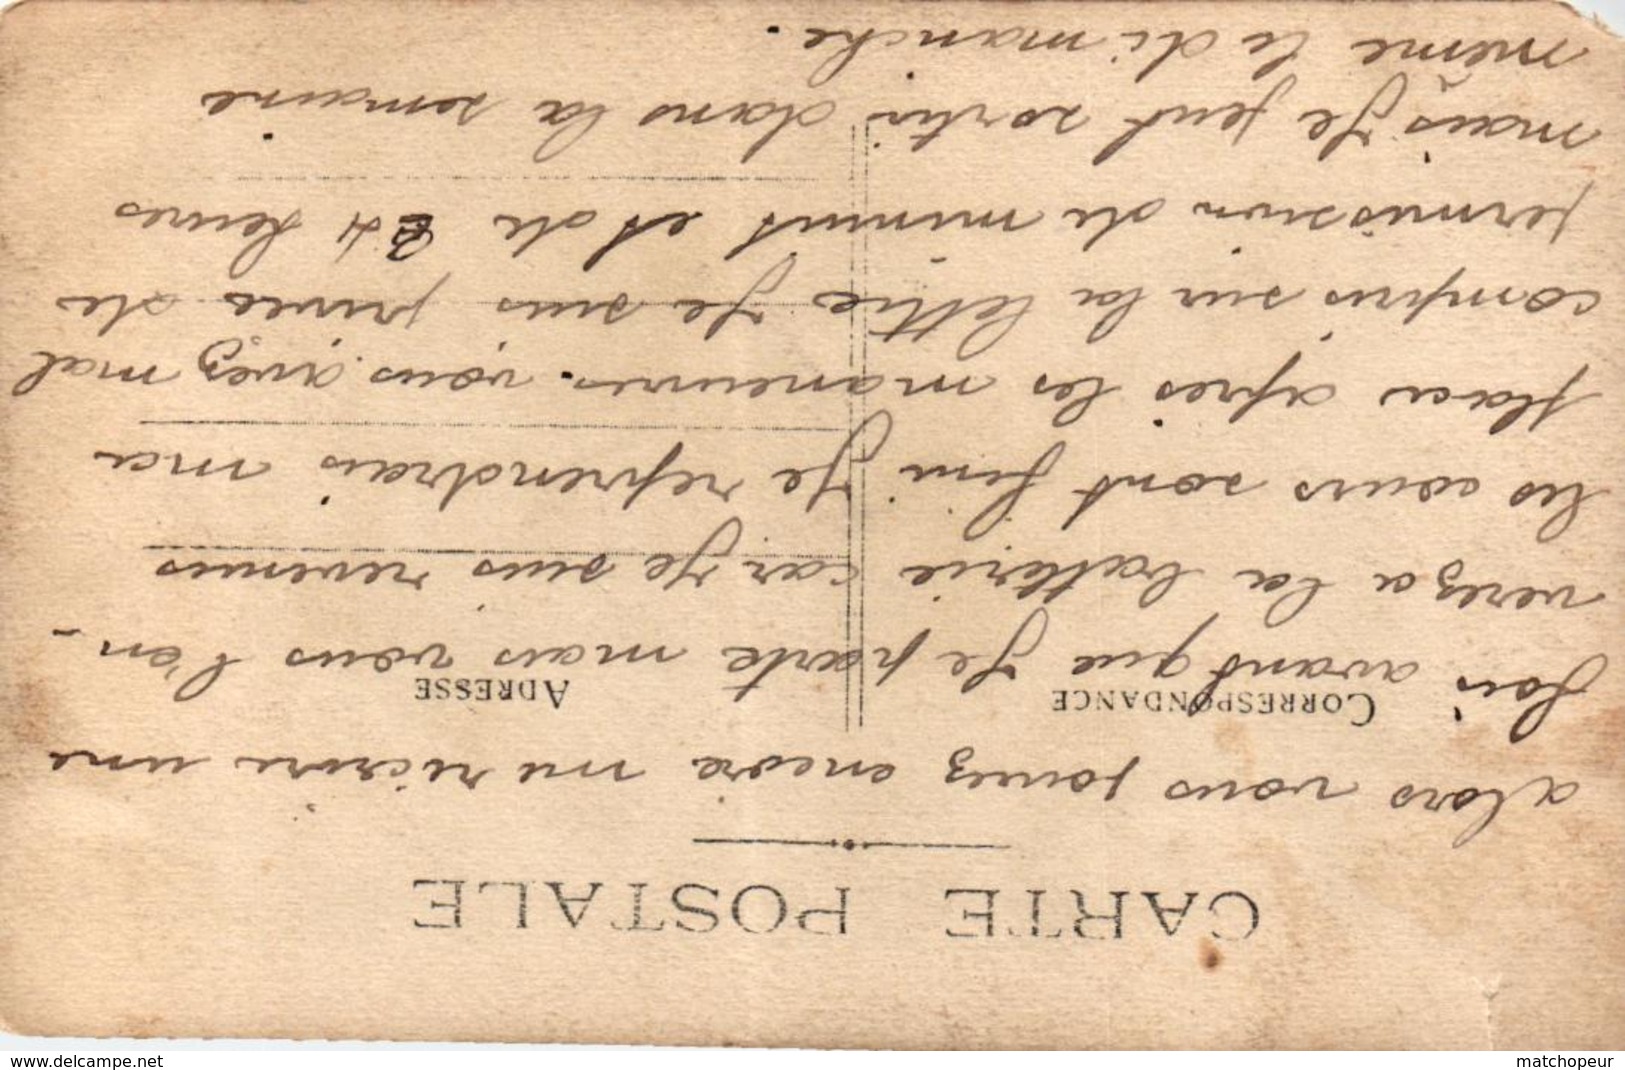 CARTE POSTALE
alors vous pouvez encore me récrire une
CORRESPONDANCE
ADRESSE
fois avant que Je parte mais vous l'en-
verez a la batterie car Je suis revenus
les cours sont fini Je reprendrais ma
place apres les maneuvres. vous avez mal
compris sur la lettre Je suis privée de
permission de minuit et de 24 heures
mais Je peut sortir dans la semaine
même le dimanche.
www.delcampe.net
matchopeur